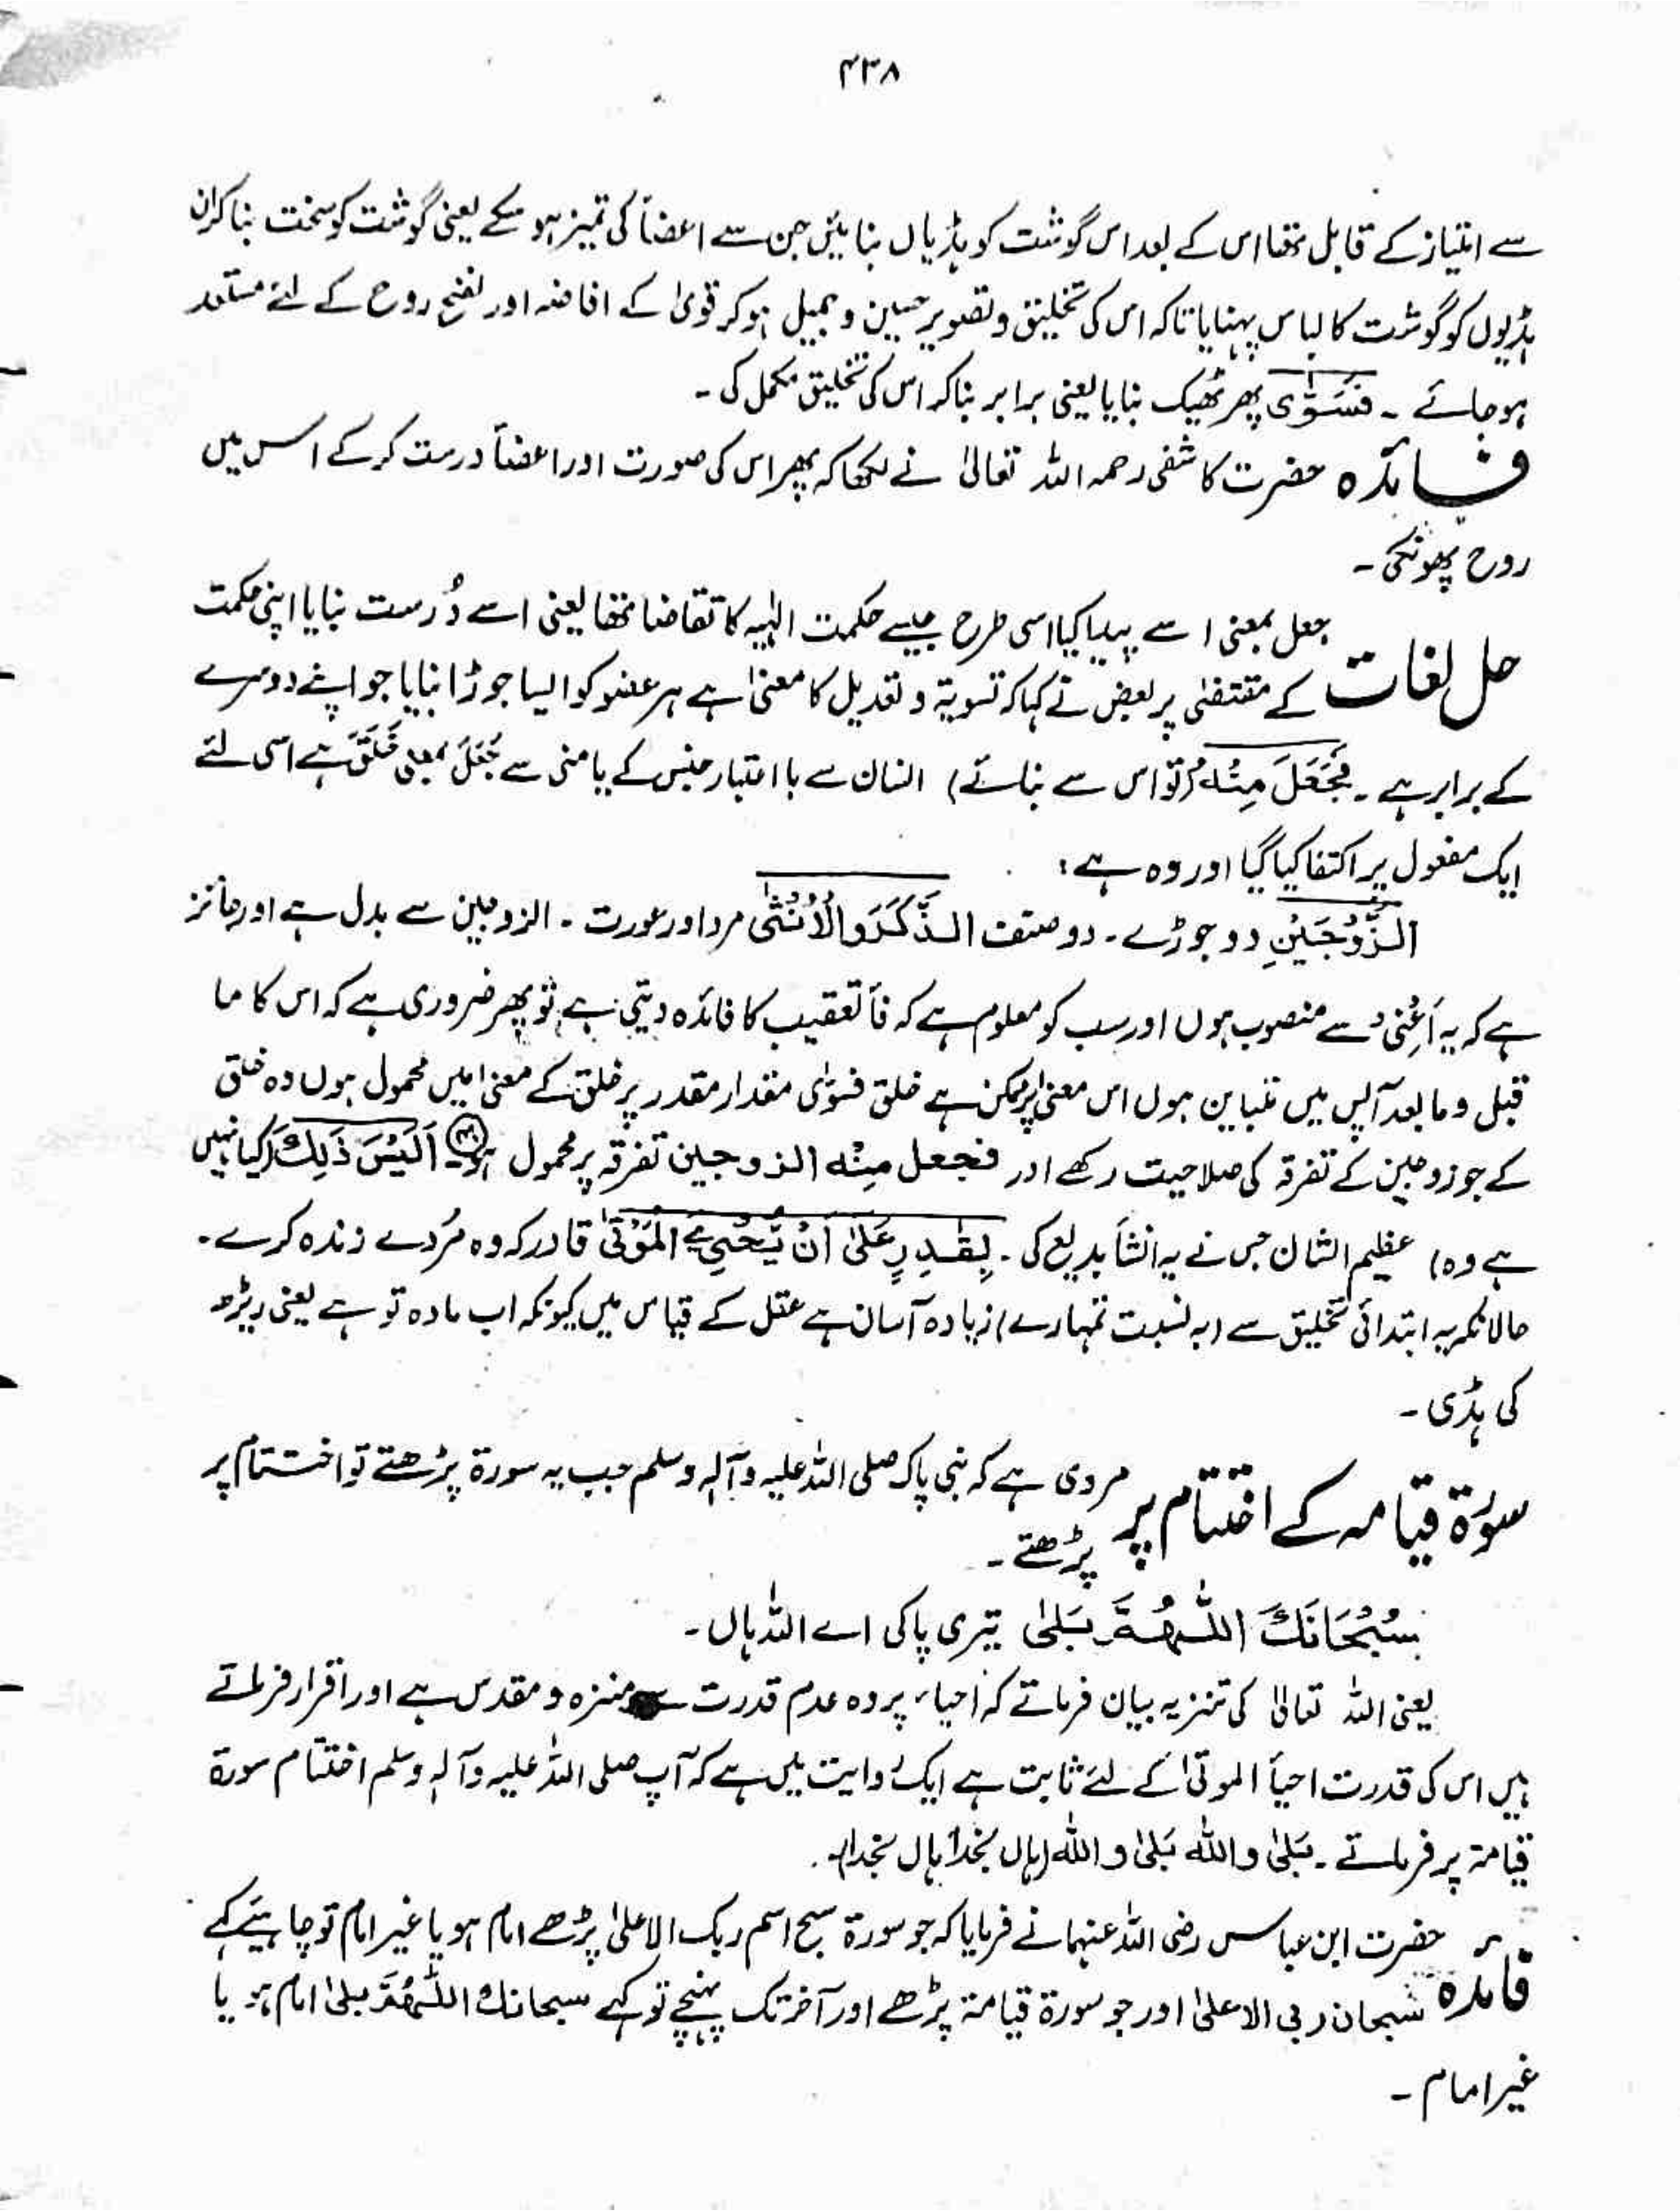 ۴۳۸
سے امتیاز کے قابل تھا اس کے بعد اس گوشت کو ہڈیاں بنائیں جن سے اعضأ کی تمیز ہو سکے یعنی گوشت کو سخت بنا کر ان
ہڈیوں کو گوشت کا لباس پہنایا تاکہ اس کی تخلیق و تصویر حسین و جمیل ہو کر قویٰ کے افاضہ اور نفخ روح کے لئے مستعد
ہو جائے ۔ فَسَوّٰی پھر ٹھیک بنایا یعنی برابر بنا کر اس کی تخلیق مکمل کی ۔
فائدہ حضرت کاشفی رحمہ اللہ تعالیٰ نے لکھا کہ پھر اس کی صورت اور اعضأ درست کر کے اس میں
روح پھونکی ۔
حل لغات جعل بمعنی اسے پیدا کیا اسی طرح جیسے حکمت الٰہیہ کا تقاضا تھا یعنی اسے دُرست بنایا اپنی حکمت
کے مقتضٰی پر بعض نے کہا کہ تسویۃ و تعدیل کا معنیٰ ہے ہر عضو کو ایسا جوڑا بنایا جو اپنے دوسرے
کے برابر ہے ۔ فَجَعَلَ مِنْہُ (تو اس سے بنائے) انسان سے با اعتبار جنس کے یا منی سے جَعَلَ بمعنی خَلَقَ ہے اسی لئے
ایک مفعول پر اکتفا کیا گیا اور وہ ہے :
الزَّوْجَیْنِ دو جوڑے ۔ دو صنف الذَّکَرَ وَالْاُنْثٰی مرد اور عورت ۔ الزوجین سے بدل ہے اور جائز
ہے کہ یہ اَعْنِی سے منصوب ہوں اور سب کو معلوم ہے کہ فأ تعقیب کا فائدہ دیتی ہے تو پھر ضروری ہے کہ اس کا ما
قبل و ما بعد آپس میں متباین ہوں اس معنیٰ پر ممکن ہے خلق فسوّٰی مقدار مقدر پر خلق کے معنیٰ میں محمول ہوں وہ خلق
کے جو زوجین کے تفرقہ کی صلاحیت رکھے اور فجعل منْہ الزوجین تفرقہ پر محمول ہو۔ اَلَیْسَ ذٰلِکَ (کیا نہیں
ہے وہ) عظیم الشان جس نے یہ انشأ بدیع کی ۔ بِقٰدِرٍ عَلٰی اَنْ یُّحْیِۦَ الْمَوْتٰی قادر کہ وہ مُردے زندہ کرے ۔
حالانکہ یہ ابتدائی تخلیق سے (بہ نسبت تمہارے) زیادہ آسان ہے عقل کے قیاس میں کیونکہ اب مادہ تو ہے یعنی ریڑھ
کی ہڈی ۔
سورۃ قیامہ کے اختتام پر مروی ہے کہ نبی پاک صلی اللہ علیہ وآلہٖ وسلم جب یہ سورۃ پڑھتے تو اختتام پر
پڑھتے ۔
سُبْحَانَکَ اللّٰہُمَّ بَلٰی تیری پاکی اے اللہ ہاں ۔
یعنی اللہ تعالیٰ کی تنزیہ بیان فرماتے کہ احیاء پر وہ عدم قدرت سے منزہ و مقدس ہے اور اقرار فرماتے
ہیں اس کی قدرت احیأ الموتیٰ کے لئے ثابت ہے ایک روایت میں ہے کہ آپ صلی اللہ علیہ وآلہٖ وسلم اختتام سورۃ
قیامۃ پر فرماتے ۔ بَلٰی واللّٰہ بَلٰی واللّٰہ (ہاں بخدا ہاں بخدا) ۔
فائدہ حضرت ابن عباس رضی اللہ عنہما نے فرمایا کہ جو سورۃ سبح اسم ربک الاعلیٰ پڑھے امام ہو یا غیر امام تو چاہیئے کہے
سُبحان ربی الاعلیٰ اور جو سورۃ قیامۃ پڑھے اور آخر تک پہنچے تو کہے سبحانک اللّٰہُمَّ بلیٰ امام ہو یا
غیر امام ۔